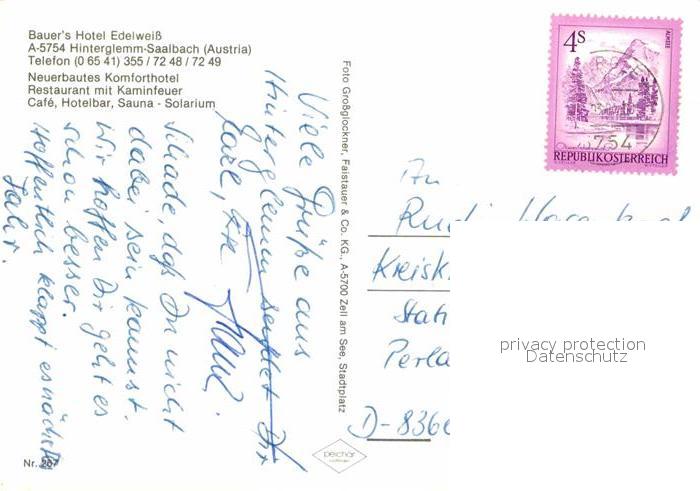 Bauer's Hotel Edelweiß
A-5754 Hinterglemm-Saalbach (Austria)
Telefon (0 65 41) 355 / 72 48 / 72 49
Neuerbautes Komforthotel
Restaurant mit Kaminfeuer
Café, Hotelbar, Sauna - Solarium
Viele Grüße aus
Hinterglemm sendet Dir
Schade, daß Du nicht
dabei sein kannst.
Wir hoffen Dir geht es
schon besser.
Hoffentlich klappt es nächstes
Jahr.
Nr. 267
Foto Großglockner, Faistauer & Co. KG., A-5700 Zell am See, Stadtplatz
peichär
4 S
ALMSEE
REPUBLIK ÖSTERREICH
754
An
Rudi
Kreisk
Stati
Perla
D-836
privacy protection
Datenschutz